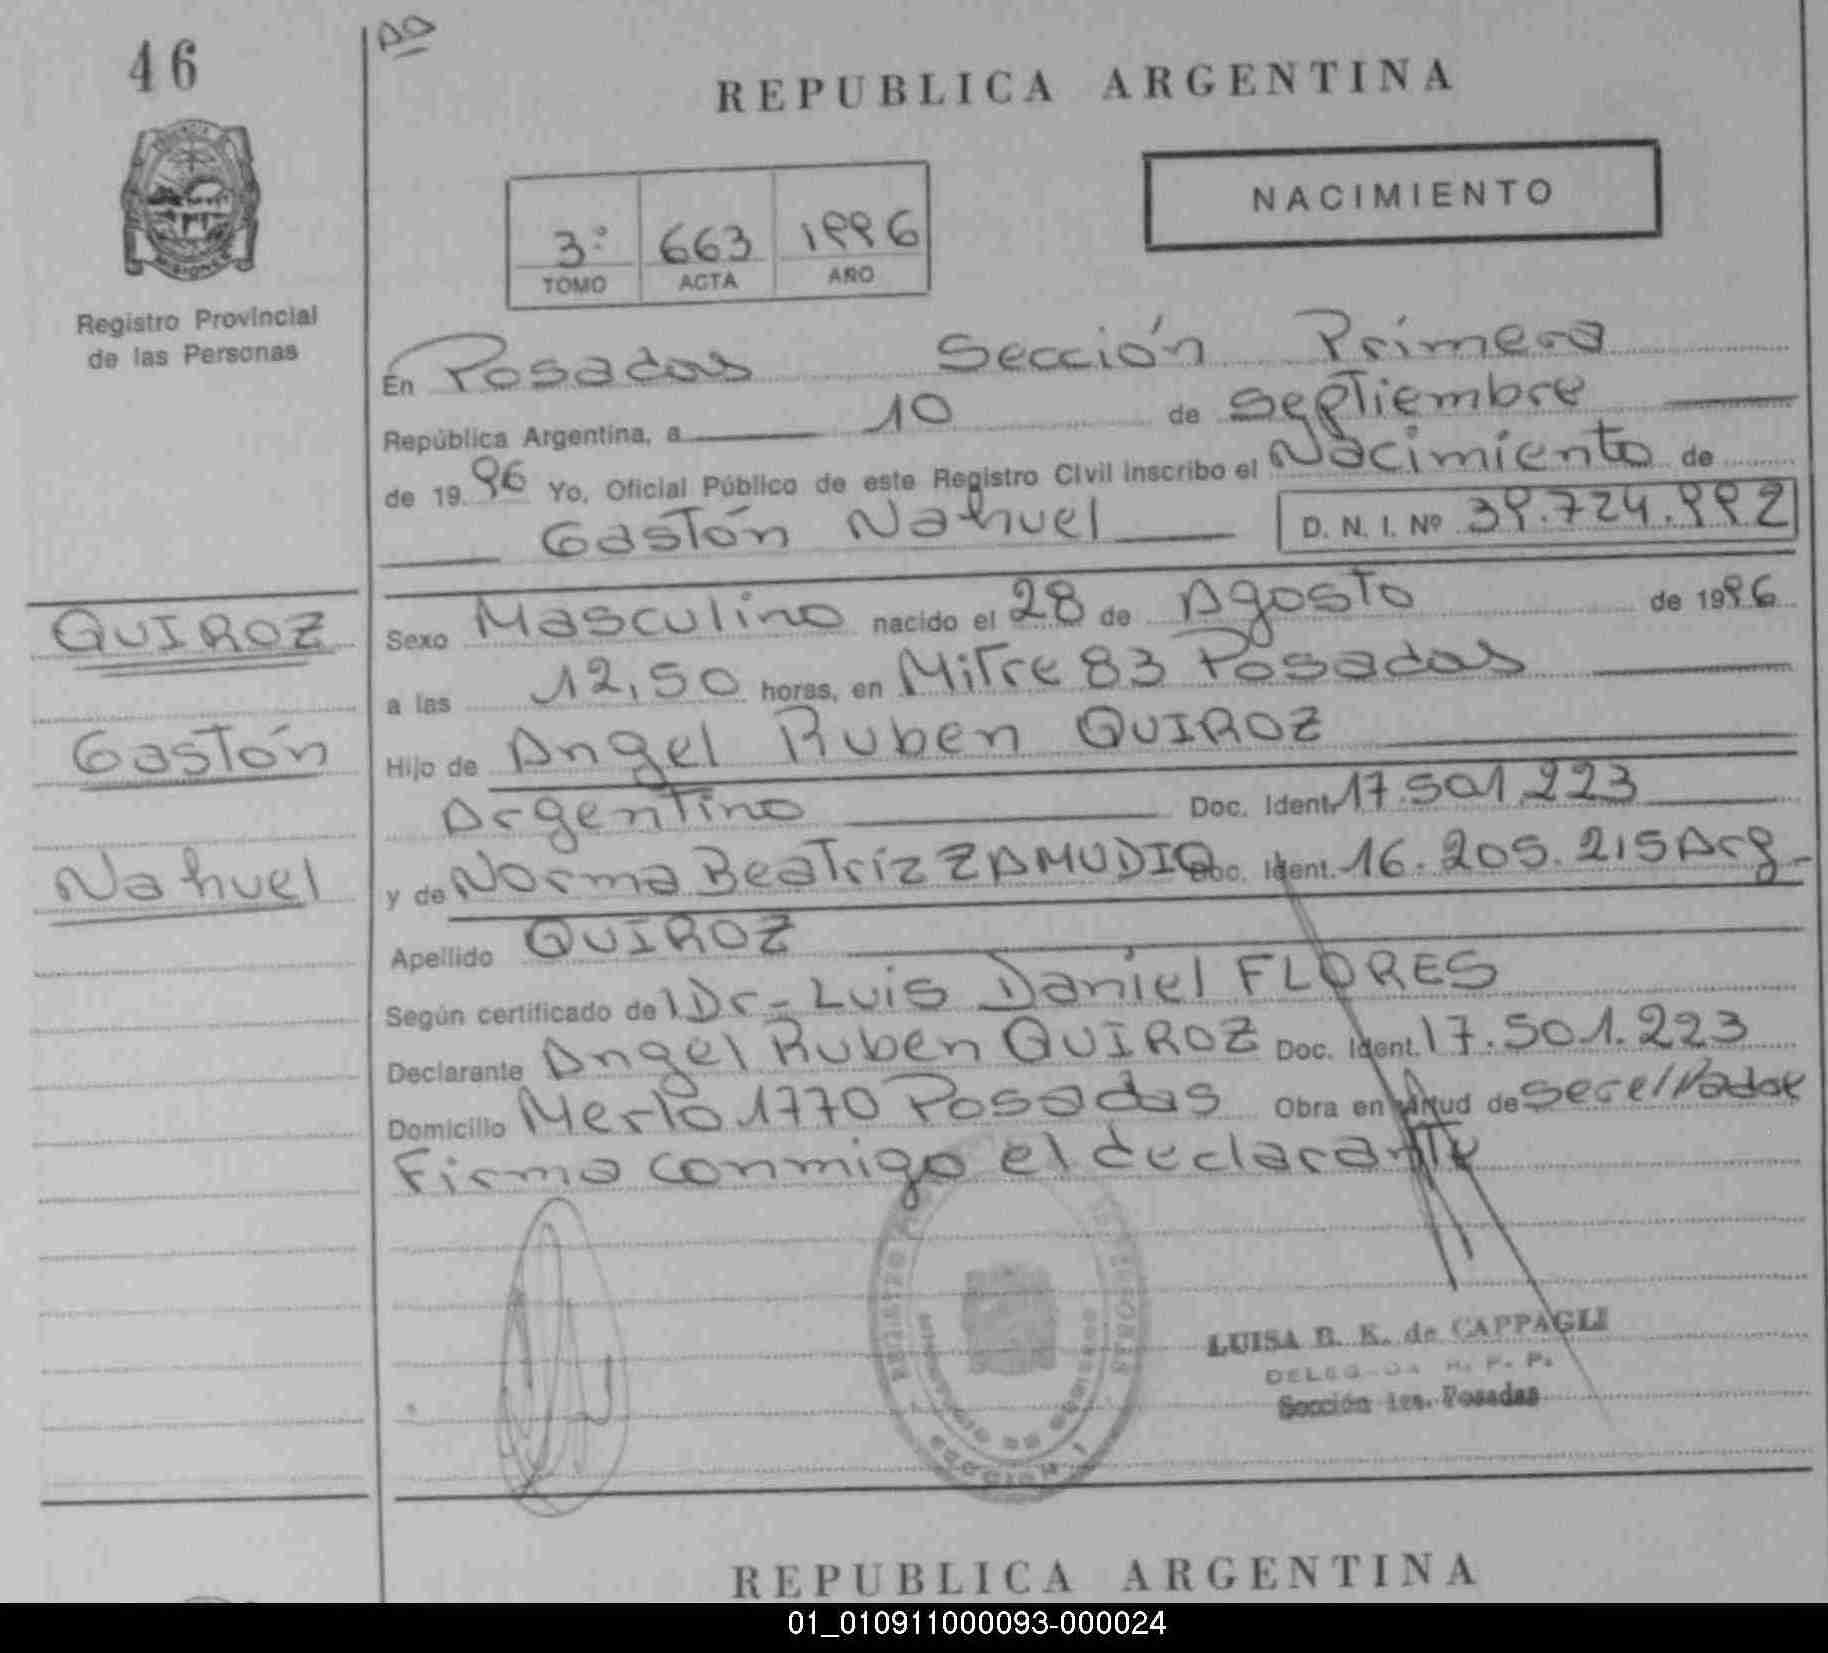 46
REPUBLICA ARGENTINA
NACIMIENTO
3º 663 1996
TOMO ACTA AÑO
MISIONES
Registro Provincial
de las Personas
En Posadas Sección Primera
República Argentina, a 10 de Septiembre
de 1996 Yo, Oficial Público de este Registro Civil inscribo el Nacimiento de
Gastón Nahuel D. N. I. Nº 39.724.992
QUIROZ
Gastón
Nahuel
Sexo Masculino nacido el 28 de Agosto de 1996
a las 12,50 horas, en Mitre 83 Posadas
Hijo de Angel Ruben QUIROZ
Argentino Doc. Ident. 17.501.223
y de Norma Beatriz ZAMUDIO Doc. Ident. 16.205.215 Arg.
Apellido QUIROZ
Según certificado del Dr. Luis Daniel FLORES
Declarante Angel Ruben QUIROZ Doc. Ident. 17.501.223
Domicilio Merlo 1770 Posadas Obra en virtud de ser el Padre
Firma conmigo el declarante
LUISA B. K. de CAPPAGLI
R. P. P.
Sección 1ra. Posadas
REGISTRO
MINISTERIO DE GOBIERNO
SECCION 1
REPUBLICA ARGENTINA
01_010911000093-000024